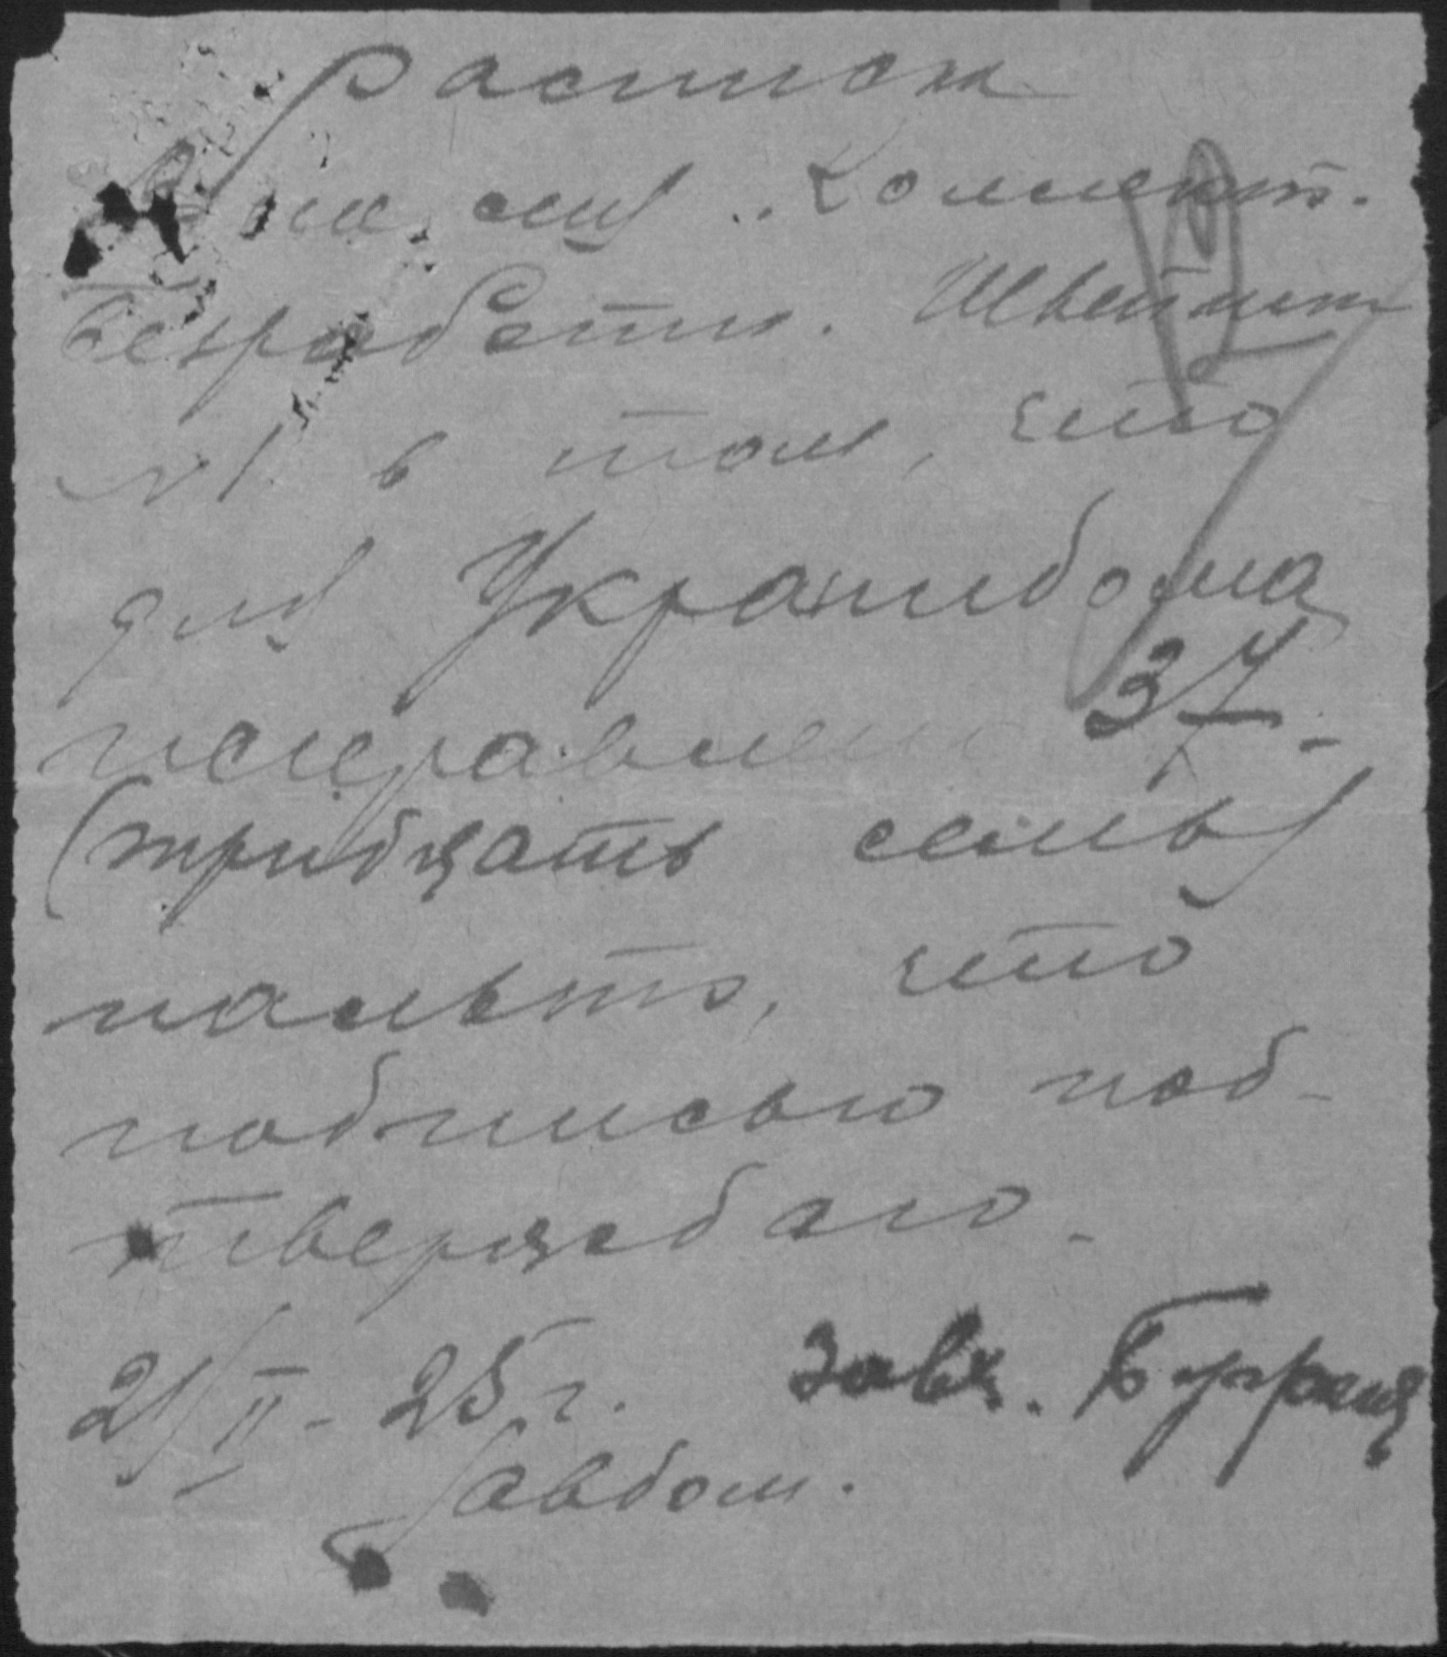 Расписка
Дана сия .. Коллект.
безработн. Швейпт
№ 1 в том, что
для Украинбома
исправлено 37
(тридцать семь)
пальто, что
подписью под-
тверждаю.
21/II - 25 г. Завх.